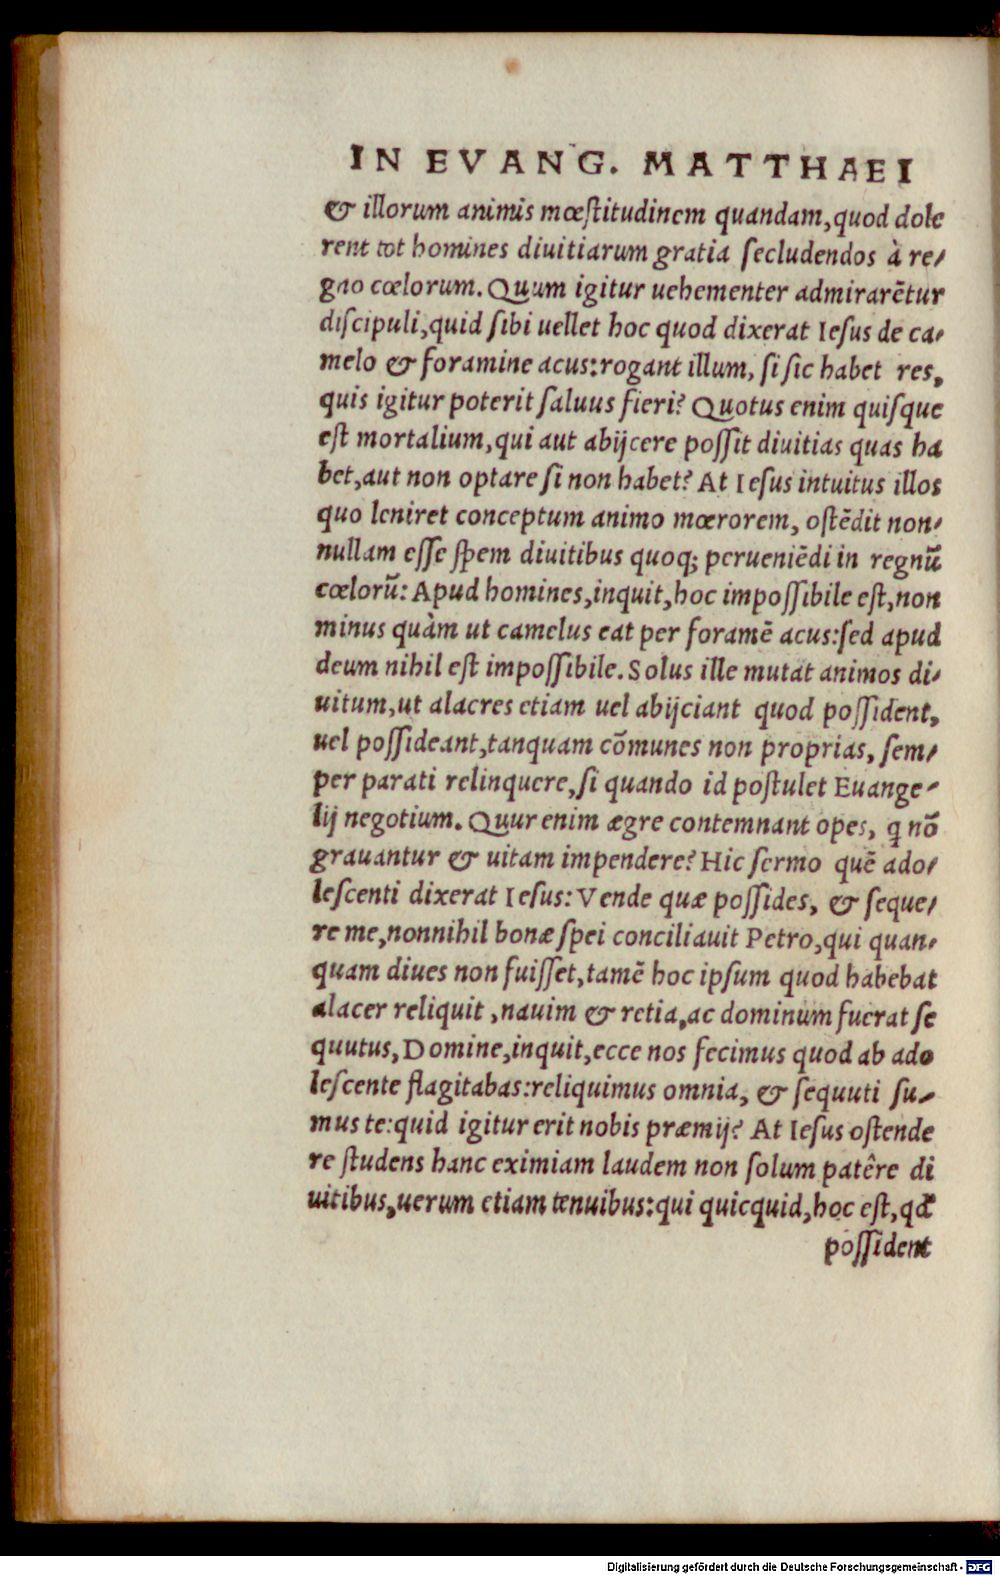 IN EVANG. MATTHAEI
& illorum animis mœstitudinem quandam,quod dole
rent tot homines diuitiarum gratia ſecludendos à re⸗
gno cœlorum. Quum igitur uehementer admirarētur
diſcipuli,quid ſibi uellet hoc quod dixerat Ieſus de ca⸗
melo & foramine acus:rogant illum, ſi ſic habet res,
quis igitur poterit ſaluus fieri? Quotus enim quiſque
eſt mortalium,qui aut abijcere poſſit diuitias quas ha
bet,aut non optare ſi non habet? At Ieſus intuitus illos
quo leniret conceptum animo mœrorem, oſtēdit non⸗
nullam eſſe ſpem diuitibus quoq; perueniēdi in regnū
cœlorū: Apud homines,inquit,hoc impoſſibile eſt,non
minus quàm ut camelus eat per foramē acus:ſed apud
deum nihil eſt impoſſibile. Solus ille mutat animos di⸗
uitum,ut alacres etiam uel abijciant quod poſſident,
uel poſſideant,tanquam cōmunes non proprias, ſem⸗
per parati relinquere,ſi quando id poſtulet Euange⸗
lij negotium. Quur enim ægre contemnant opes, q nō
grauantur & uitam impendere? Hic ſermo quē ado⸗
leſcenti dixerat Ieſus: Vende quæ poſſides, & ſeque⸗
re me,nonnihil bonæ ſpei conciliauit Petro,qui quan⸗
quam diues non fuiſſet,tamē hoc ipſum quod habebat
alacer reliquit ,nauim & retia,ac dominum fuerat ſe
quutus,Domine,inquit,ecce nos fecimus quod ab ado
leſcente flagitabas:reliquimus omnia, & ſequuti ſu⸗
mus te:quid igitur erit nobis præmij? At Ieſus oſtende
re ſtudens hanc eximiam laudem non ſolum patêre di
uitibus,uerum etiam tenuibus:qui quicquid,hoc eſt,qd̄
poſſident
Digitalisierung gefördert durch die Deutsche Forschungsgemeinschaft - DFG